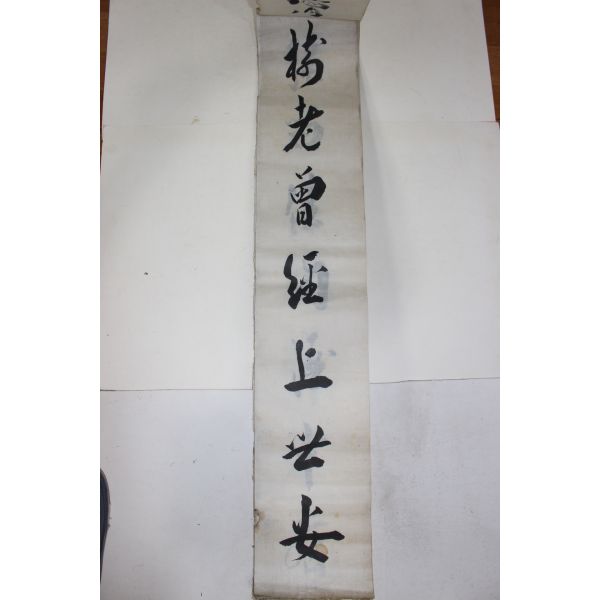 樹老曾經上世